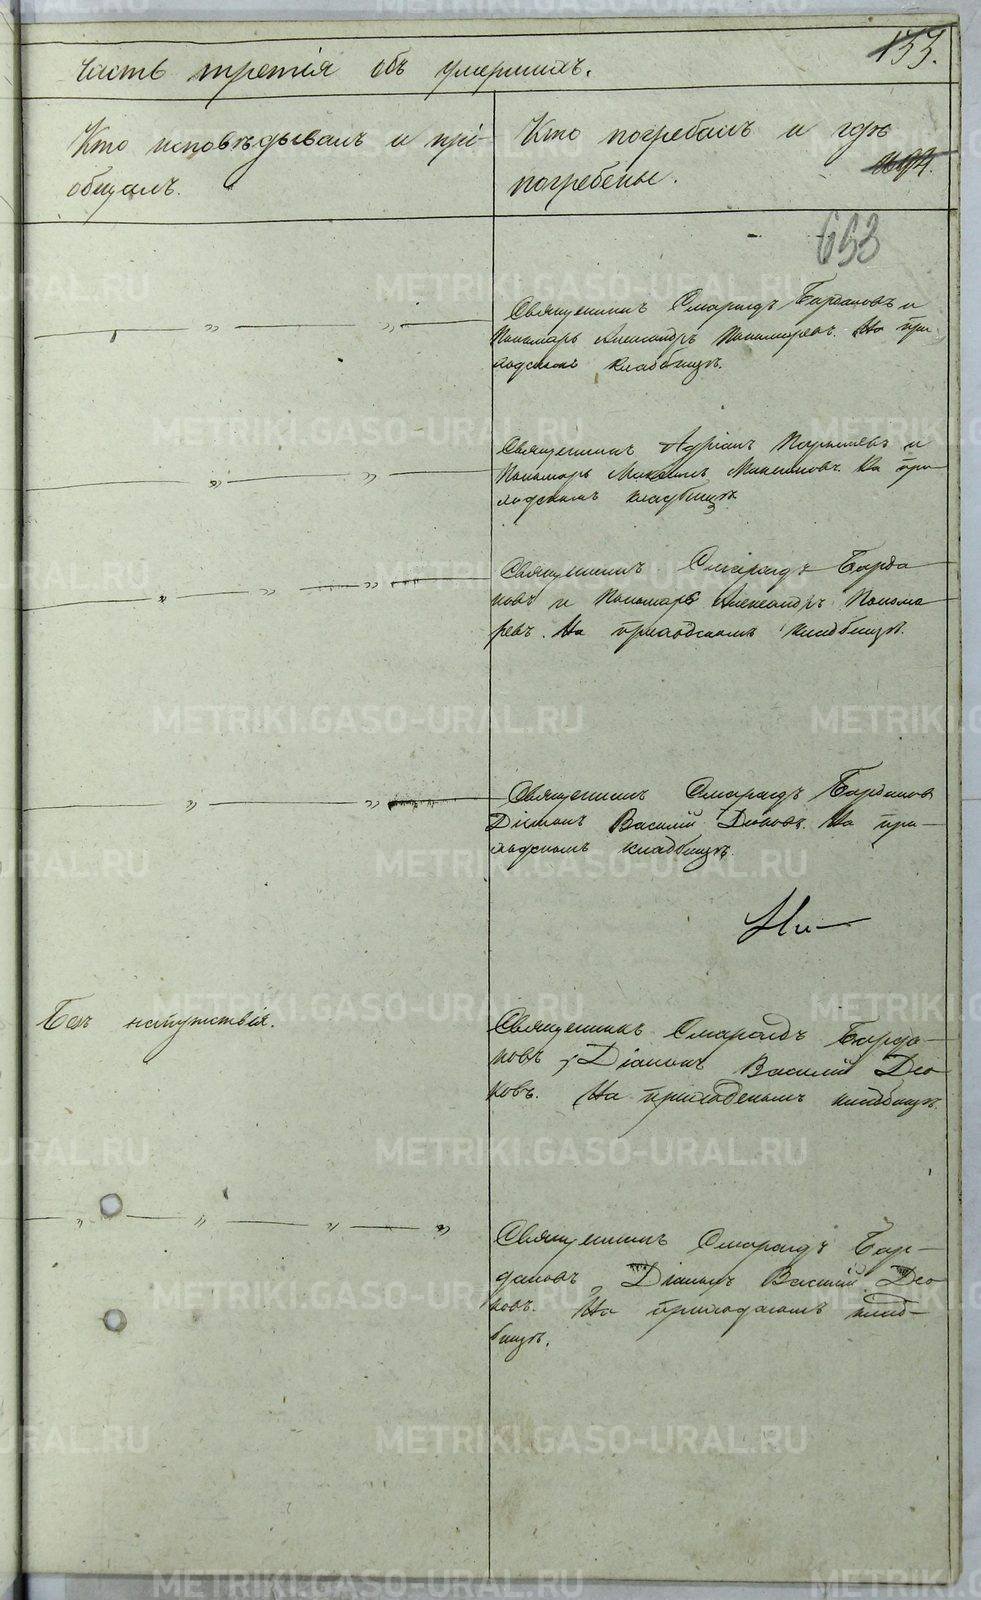 часть третія объ умершихъ.
133.
Кто исповѣдывалъ и прі-
общалъ.
Кто погребалъ и гдѣ
погребены.
653
Священникъ Смарагдъ Бардановъ и
Пономарь Александръ Пономаревъ. На при-
ходскомъ кладбищѣ.
Священникъ Адріанъ и
Пономарь Михаилъ. На при-
ходскомъ кладбищѣ.
Священникъ Смарагдъ Барда
новъ и Пономарь Александръ Понома
ревъ. На приходскомъ кладбищѣ.
Священникъ Смарагдъ Бардановъ
Діаконъ Василій. На при-
ходскомъ кладбищѣ.
Безъ напутствія.
Священникъ Смарагдъ Барда-
новъ, Діаконъ Василій
ковъ. На приходскомъ кладбищѣ.
Священникъ Смарагдъ Бар-
дановъ, Діаконъ Василій
ковъ. На приходскомъ клад-
бищѣ.
METRIKI.GASO-URAL.RU